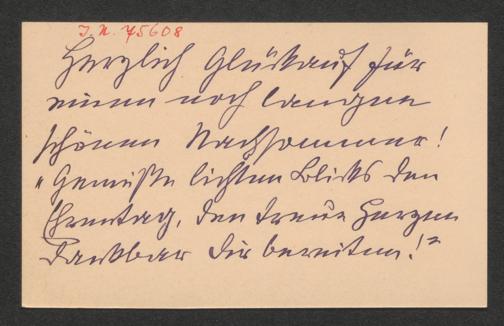 J.N. 75608
Herzlich Glückauf für
einen noch langen
schönen Nachsommer!
„Genieße lichten Blicks den
Ehrentag, den treue Herzen
Dankbar Dir bereiten!"